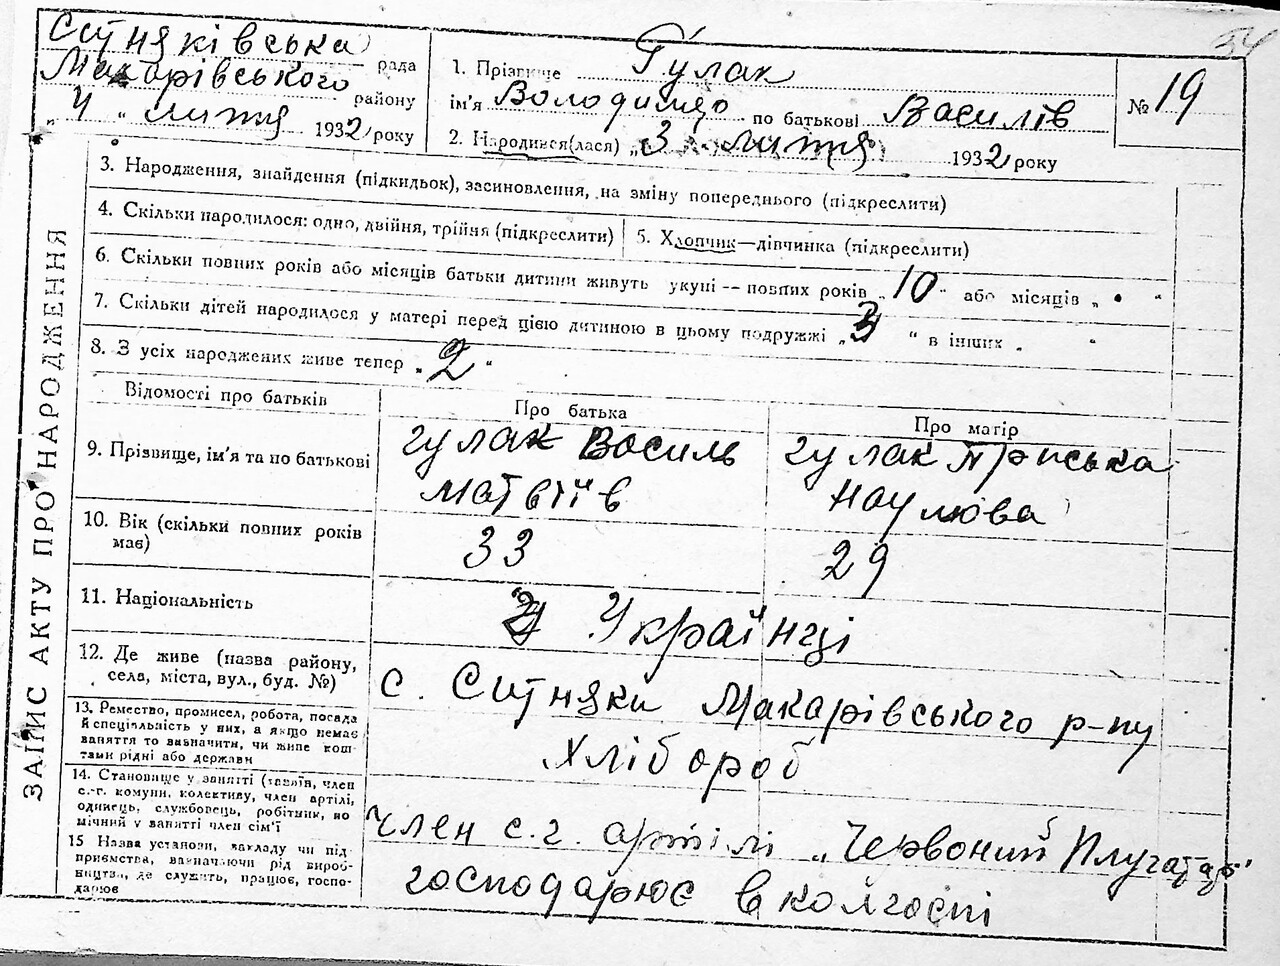 54
Ситняківська рада
Макарівського району
„ 4 “ лютя 1932 року
1. Прізвище Гулак
ім'я Володимир по батькові Василів
2. Народився(лася) „ 3 “ лютя 1932 року
№ 19
ЗАПИС АКТУ ПРО НАРОДЖЕННЯ
3. Народження, знайдення (підкидьок), засиновлення, на зміну попереднього (підкреслити)
4. Скільки народилося: одно, двійня, трійня (підкреслити) 5. Хлопчик—дівчинка (підкреслити)
6. Скільки повних років або місяців батьки дитини живуть укупі — повних років „ 10 “ або місяців „ • “
7. Скільки дітей народилося у матері перед цією дитиною в цьому подружжі „ 3 “ в інших „ “
8. З усіх народжених живе тепер „ 2 “
Відомості про батьків Про батька Про матір
9. Прізвище, ім'я та по батькові Гулак Василь Гулак Пріська
Матвіїв Наумова
10. Вік (скільки повних років 33 29
має)
11. Національність Українці
12. Де живе (назва району,
села, міста, вул., буд. №) с. Ситняки Макарівського р-ну
13. Ремество, промисел, робота, посада
й спеціальність у них, а якщо немає
заняття то зазначити, чи живе кош-
тами рідні або держави Хлібороб
14. Становище у занятті (хазяїн, член
с.-г. комуни, колективу, член артілі,
одинець, службовець, робітник, по
мічний у занятті член сім'ї член с.г. артілі „Червоний Плугатар"
15 Назва установи, закладу чи під
приємства, зазначаючи рід вироб-
ництва, де служить, працює, госпо-
дарює господарює в колгоспі